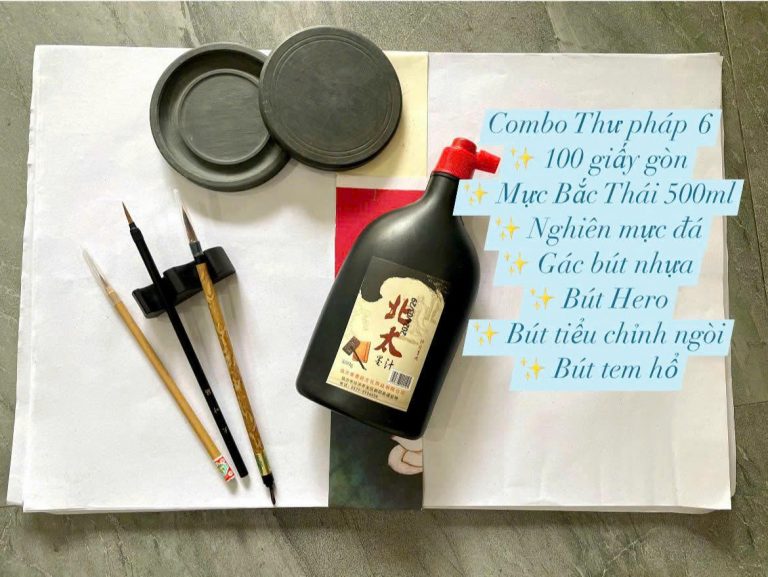 Combo Thư pháp 6
✨ 100 giấy gòn
✨ Mực Bắc Thái 500ml
✨ Nghiên mực đá
✨ Gác bút nhựa
✨ Bút Hero
✨ Bút tiểu chỉnh ngòi
✨ Bút tem hổ
北太
墨汁